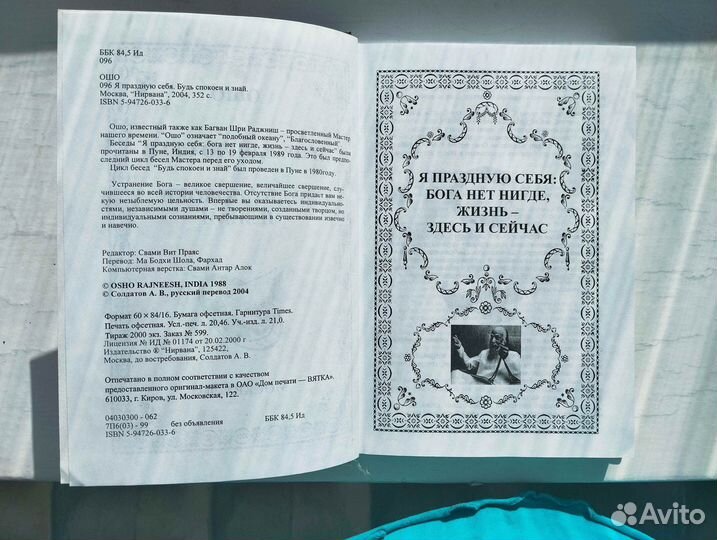 ББК 84,5 Ид
096
ОШО
096 Я праздную себя. Будь спокоен и знай.
Москва, "Нирвана", 2004, 352 с.
ISBN 5-94726-033-6
Ошо, известный также как Багван Шри Раджниш – просветленный Мастер
нашего времени. "Ошо" означает "подобный океану", "Благословенный"
Беседы "Я праздную себя: бога нет нигде, жизнь – здесь и сейчас" были
прочитаны в Пуне, Индия, с 13 по 19 февраля 1989 года. Это был предпо-
следний цикл бесед Мастера перед его уходом.
Цикл бесед "Будь спокоен и знай" был проведен в Пуне в 1980году.
Устранение Бога – великое свершение, величайшее свершение, слу-
чившееся во всей истории человечества. Отсутствие Бога придаст вам не-
кую незыблемую цельность. Впервые вы оказываетесь индивидуально-
стями, независимыми душами – не творениями, созданными творцом, но
индивидуальными сознаниями, пребывающими в существовании извечно
и навечно.
Редактор: Свами Вит Праяс
Перевод: Ма Бодхи Шола, Фархад
Компьютерная верстка: Свами Антар Алок
© OSHO RAJNEESH, INDIA 1988
© Солдатов А. В., русский перевод 2004
Формат 60 × 84/16. Бумага офсетная. Гарнитура Times.
Печать офсетная. Усл.-печ. л. 20,46. Уч.-изд. л. 21,0.
Тираж 2000 экз. Заказ № 599.
Лицензия № ИД № 01174 от 20.02.2000 г.
Издательство ® "Нирвана", 125422,
Москва, до востребования, Солдатов А. В.
Отпечатано в полном соответствии с качеством
предоставленного оригинал-макета в ОАО «Дом печати — ВЯТКА».
610033, г. Киров, ул. Московская, 122.
04030300 - 062
7П6(03) - 99 без объявления ББК 84,5 Ид
ISBN 5-94726-033-6
Я ПРАЗДНУЮ СЕБЯ:
БОГА НЕТ НИГДЕ,
ЖИЗНЬ –
ЗДЕСЬ И СЕЙЧАС
Avito